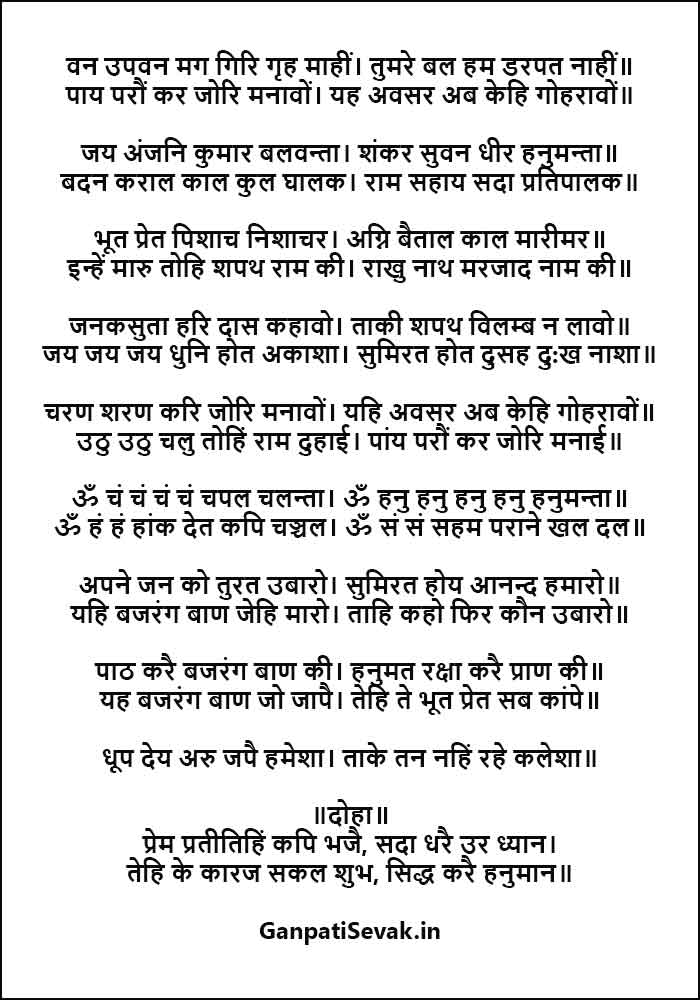 वन उपवन मग गिरि गृह माहीं। तुमरे बल हम डरपत नाहीं॥
पाय परौं कर जोरि मनावों। यह अवसर अब केहि गोहरावों॥
जय अंजनि कुमार बलवन्ता। शंकर सुवन धीर हनुमन्ता॥
बदन कराल काल कुल घालक। राम सहाय सदा प्रतिपालक॥
भूत प्रेत पिशाच निशाचर। अग्नि बैताल काल मारीमर॥
इन्हें मारु तोहि शपथ राम की। राखु नाथ मरजाद नाम की॥
जनकसुता हरि दास कहावो। ताकी शपथ विलम्ब न लावो॥
जय जय जय धुनि होत अकाशा। सुमिरत होत दुसह दुःख नाशा॥
चरण शरण करि जोरि मनावों। यहि अवसर अब केहि गोहरावों॥
उठु उठु चलु तोहिं राम दुहाई। पांय परौं कर जोरि मनाई॥
ॐ चं चं चं चं चपल चलन्ता। ॐ हनु हनु हनु हनु हनुमन्ता॥
ॐ हं हं हांक देत कपि चञ्चल। ॐ सं सं सहम पराने खल दल॥
अपने जन को तुरत उबारो। सुमिरत होय आनन्द हमारो॥
यहि बजरंग बाण जेहि मारो। ताहि कहो फिर कौन उबारो॥
पाठ करै बजरंग बाण की। हनुमत रक्षा करै प्राण की॥
यह बजरंग बाण जो जापै। तेहि ते भूत प्रेत सब कांपे॥
धूप देय अरु जपै हमेशा। ताके तन नहिं रहे कलेशा॥
॥दोहा॥
प्रेम प्रतीतिहिं कपि भजै, सदा धरै उर ध्यान।
तेहि के कारज सकल शुभ, सिद्ध करै हनुमान॥
GanpatiSevak.in